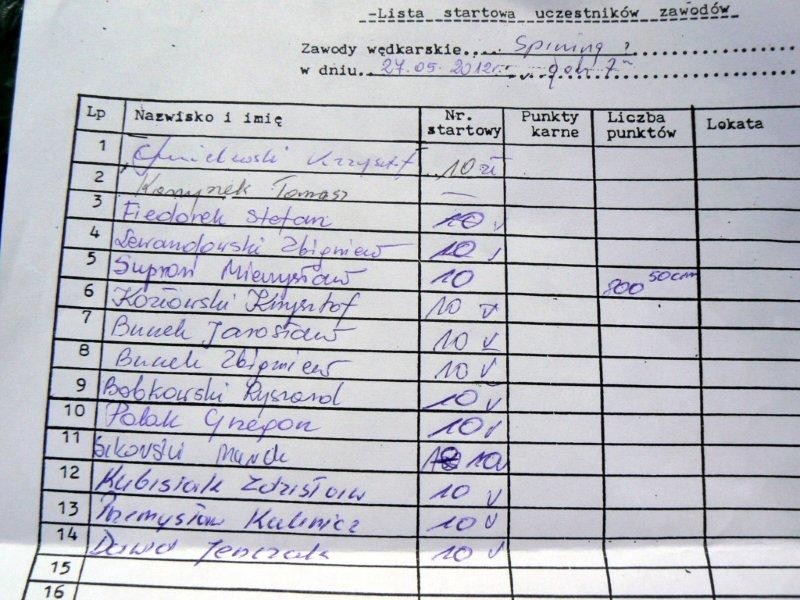 -Lista startowa uczestników zawodów
Zawody wędkarskie.... Spining
w dniu.. 27.05.2012r. godz 7
Lp Nazwisko i imię Nr. startowy Punkty karne Liczba punktów Lokata
1 Chmielewski Krzysztof 10 zł
2 Tomasz —
3 Fiedorek Stefan 10 v
4 Lewandowski Zbigniew 10 v
5 Suproń Mieczysław 10 800 50cm
6 Kozłowski Krzysztof 10 v
7 Bucek Jarosław 10 v
8 Bucek Zbigniew 10 v
9 Bobkowski Ryszard 10 v
10 Polak Grzegorz 10 v
11 Sikorski Marek 10
12 Kubisiak Zdzisław 10 v
13 Przemysław 10 v
14 Dawid 10 v
15
16